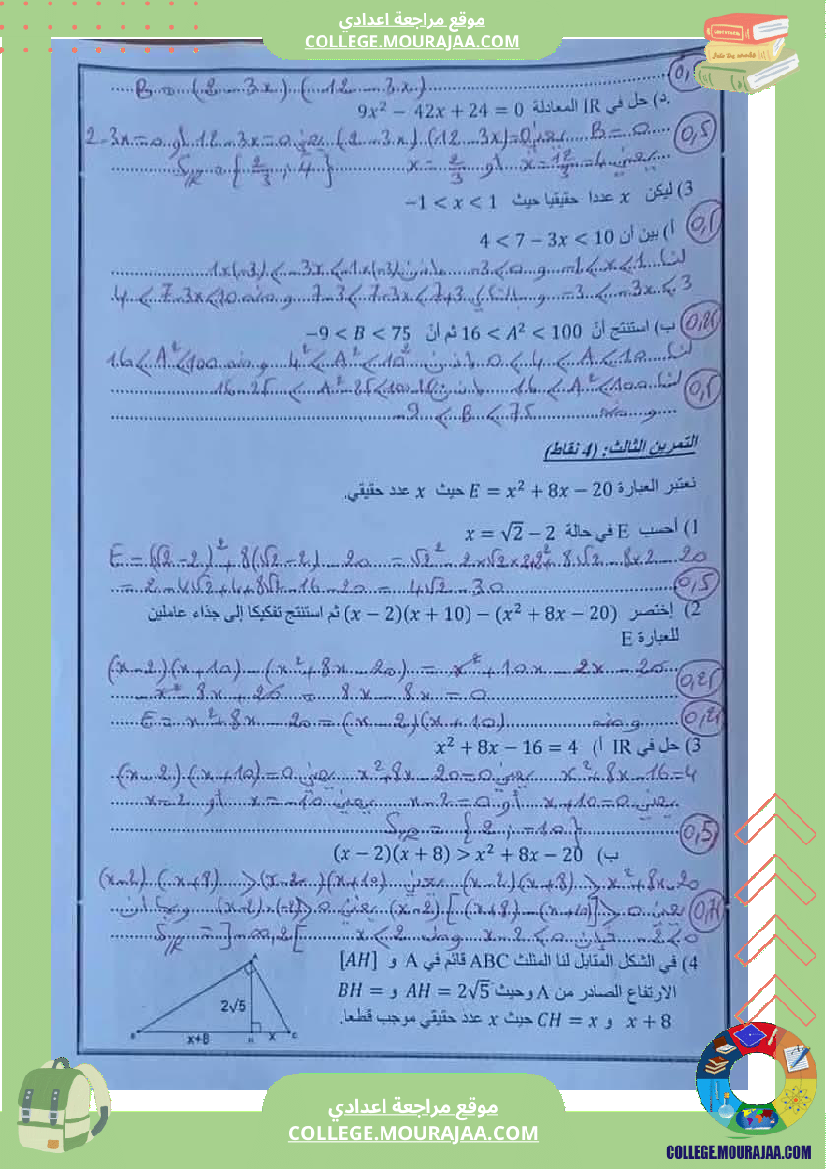 موقع مراجعة اعدادي
COLLEGE.MOURAJAA.COM
B = (2 - 3x)(12 - 3x)
د) حل في IR المعادلة 9x² − 42x + 24 = 0
0,5
B = 0 يعني (2 - 3x)(12 - 3x) = 0 يعني 12 - 3x = 0 أو 2 - 3x = 0
يعني x = 12/3 = 4 أو x = 2/3 S_IR = {2/3 ; 4}
3) ليكن x عددا حقيقيا حيث −1 < x < 1
أ) بين أن 4 < 7 − 3x < 10
لنا -1 < x < 1 و -3 < 0 إذن 1×(-3) < -3x < -1×(-3)
-3 < -3x < 3 وبالتالي 7-3 < 7-3x < 7+3 ومنه 4 < 7-3x < 10
ب) استنتج أنّ 16 < A² < 100 ثم أنّ −9 < B < 75
0,25
لنا 0 < 4 < A < 10 إذن 4² < A² < 10² ومنه 16 < A² < 100
لنا 16 < A² < 100 إذن 16-25 < A²-25 < 100-25
0,5
ومنه -9 < B < 75
التمرين الثالث: (4 نقاط)
نعتبر العبارة E = x² + 8x − 20 حيث x عدد حقيقي.
1) أحسب E في حالة x = √2 − 2
E = (√2 - 2)² + 8(√2 - 2) - 20 = √2² - 2×√2×2+2² + 8√2 - 8×2 - 20
= 2 - 4√2 + 4 + 8√2 - 16 - 20 = 4√2 - 30
0,5
2) إختصر (x − 2)(x + 10) − (x² + 8x − 20) ثم استنتج تفكيكا إلى جذاء عاملين
للعبارة E
(x-2)(x+10) - (x² + 8x - 20) = x² + 10x - 2x - 20
0,25
- x² - 8x + 20 = 8x - 8x = 0
ومنه E = x² + 8x - 20 = (x - 2)(x + 10)
0,25
3) حل في IR أ) x² + 8x − 16 = 4
x² + 8x - 16 = 4 يعني x² + 8x - 20 = 0 يعني (x - 2)(x + 10) = 0
يعني x + 10 = 0 أو x - 2 = 0 يعني x = -10 أو x = 2
S_IR = {2 ; -10}
0,5
ب) (x − 2)(x + 8) > x² + 8x − 20
(x-2)(x+8) > x² + 8x - 20 يعني (x-2)(x+8) > (x-2)(x+10)
يعني (x-2)[(x+8) - (x+10)] > 0 يعني (x-2)×(-2) > 0 وبما أن
-2 < 0 فإن x - 2 < 0 ومنه x < 2 S_IR = ]-∞, 2[
4) في الشكل المقابل لنا المثلث ABC قائم في A و [AH]
الارتفاع الصادر من A وحيث AH = 2√5 و BH =
x + 8 و CH = x حيث x عدد حقيقي موجب قطعا.
A
2√5
B
x+8
H
x
C
موقع مراجعة اعدادي
COLLEGE.MOURAJAA.COM
COLLEGE.MOURAJAA.COM